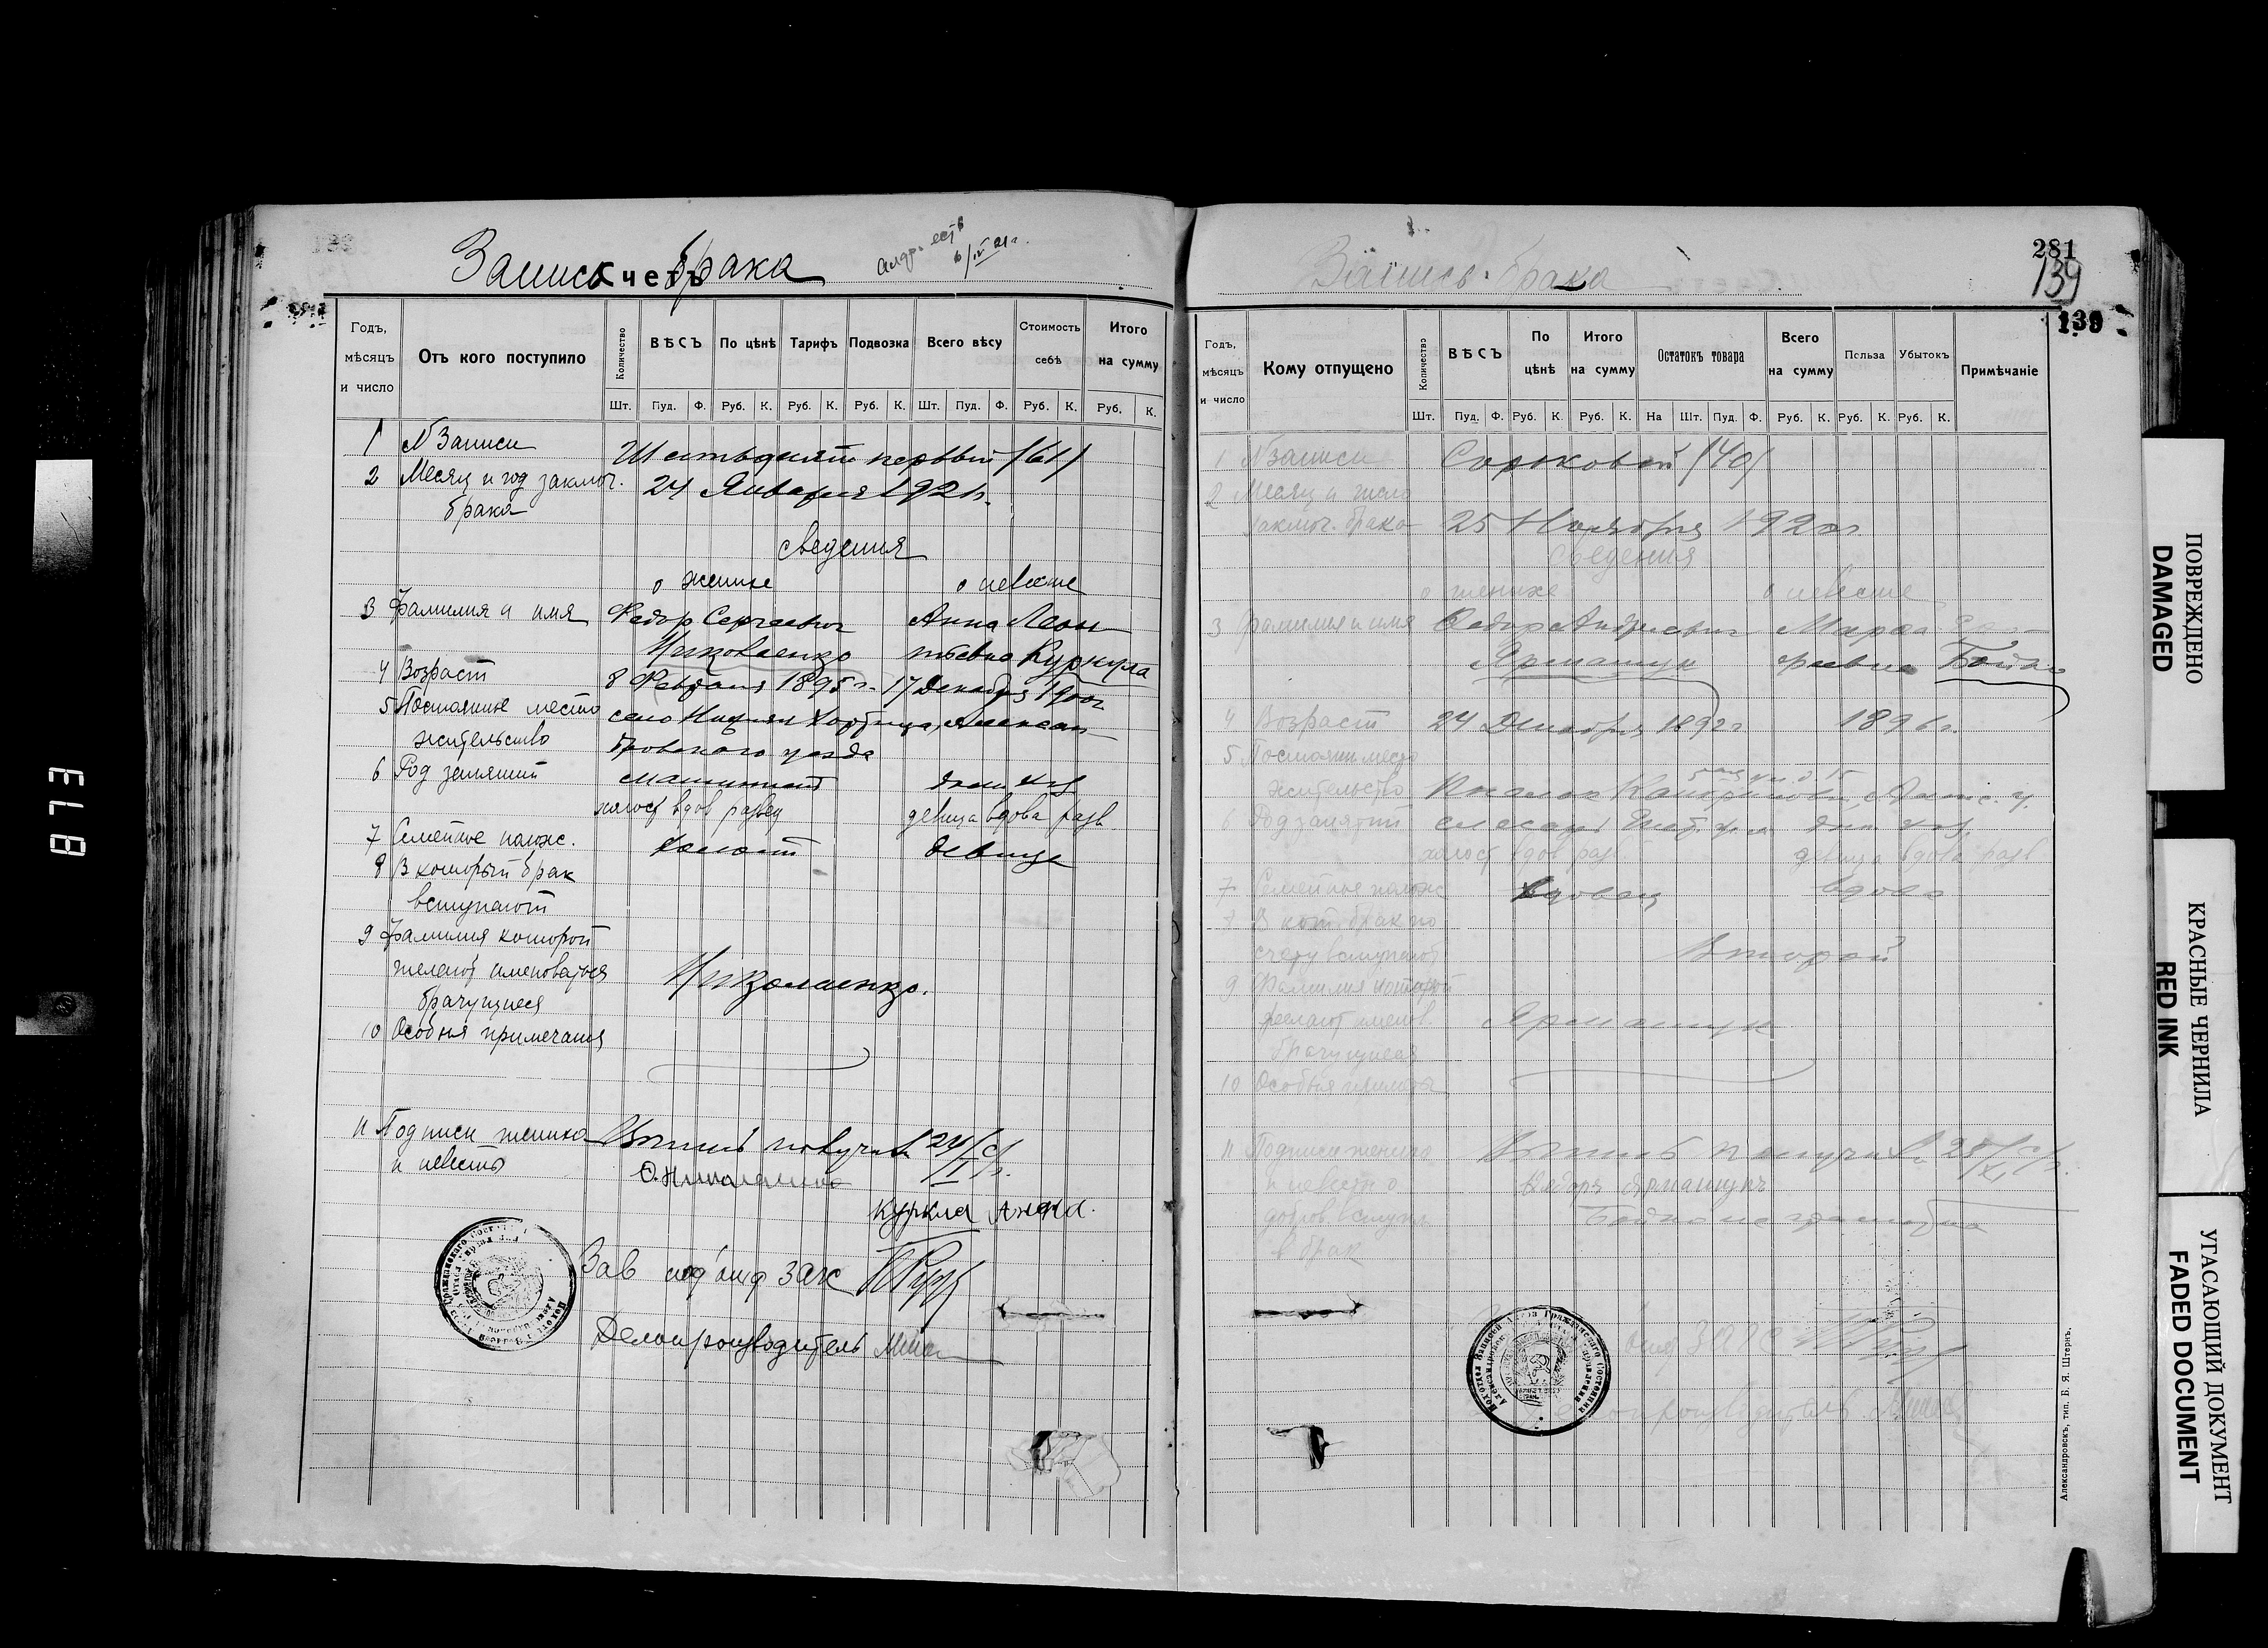 Запись брака
счетъ
Годъ, мѣсяцъ и число
Отъ кого поступило
Количество
ВѢСЪ
По цѣнѣ
Тарифъ
Подвозка
Всего вѣсу
Стоимость себѣ
Итого на сумму
Шт. Пуд. Ф. Руб. К. Руб. К. Руб. К. Шт. Пуд. Ф. Руб. К. Руб. К.
1 N Записи Шестьдесят первый (61)
2 Месяц и год заключ. 24 Января 1921 г.
брака
сведения
о женихе о невесте
3 Фамилия и имя Федор Сергеевич Анна Леон
Николаенко тьевна Куркула
4 Возраст 8 Февраля 1895 г. 17 Декабря 1900 г
5 Постоянное место село Нижняя Хортица, Алексан
жительство дровского уезда
6 Род занятий машинист дом. хоз
холост вдов развед девица вдова разв
7 Семейное полож. Холост девица
8 В который брак
вступают
9 Фамилия которой
желают именоваться Николаенко.
брачущиеся
10 Особыя примечания
11 Подписи жениха
и невесты
Куркла Анна.
Зав подотд ЗАГС
Делопроизводитель
Запись брака
281
139
139
Годъ, мѣсяцъ и число
Кому отпущено
Количество
ВѢСЪ
По цѣнѣ
Итого на сумму
Остатокъ товара
Всего на сумму
Польза
Убытокъ
Примѣчаніе
Шт. Пуд. Ф. Руб. К. Руб. К. На Шт. Пуд. Ф. Руб. К. Руб. К. Руб. К.
1 N записи Сороковой (40)
2 Месяц и число
заключ. брака 25 Ноября 1920 г
сведения
о женихе о невесте
3 Фамилия и имя Федор Андреевич Марфа
Ярмащук Бойко
4 Возраст 24 Декабря 1892 г 1896 г.
5 Постоян место
жительство
6 Род занятий слесарь дом. хоз.
холост вдов разв девица вдова разв
7 Семейное полож вдовец вдова
7 В кот. брак по
счету вступают Второй
9 Фамилия которой
желают именов. Ярмащук
брачущиеся
10 Особыя примеч
11 Подписи жениха
и невесты о
добров. вступл.
в брак
Федоръ Ярмащукъ
Бойко не грамотна
ЗАГС
Делопроизводитель
Подотдел Записи Актов Гражданского Состояния
Александровскъ, тип. Б. Я. Штернъ.
ПОВРЕЖДЕНО
DAMAGED
КРАСНЫЕ ЧЕРНИЛА
RED INK
УГАСАЮЩИЙ ДОКУМЕНТ
FADED DOCUMENT